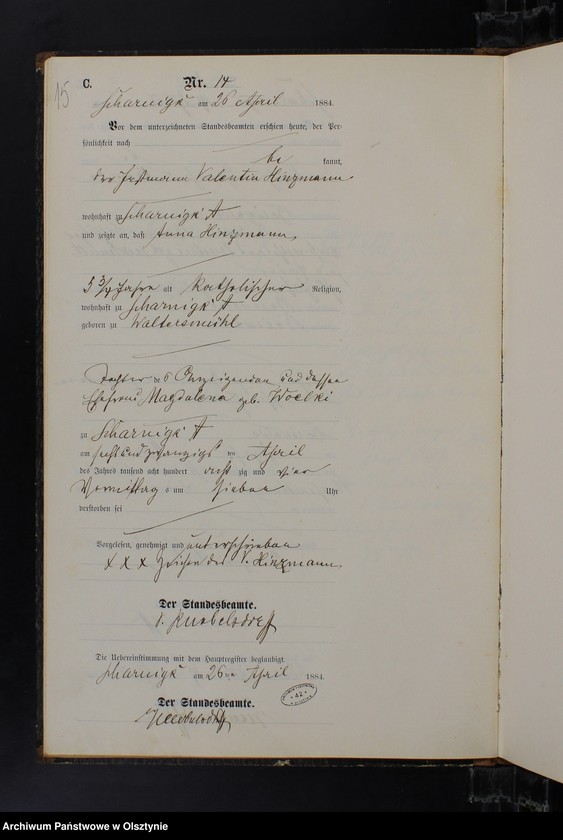 15
C. Nr. 14
Scharnigk am 26 April 1884.
Vor dem unterzeichneten Standesbeamten erschien heute, der Per-
sönlichkeit nach
be kannt,
der Instmann Valentin Hinzmann
wohnhaft zu Scharnigk A
und zeigte an, daß Anna Hinzmann,
5 3/4 Jahre alt katholischer Religion,
wohnhaft zu Scharnigk A
geboren zu Waltersmühl
Tochter des Anzeigenden und dessen
Ehefrau Magdalena geb. Woelki
zu Scharnigk A
am sechsundzwanzigsten April
des Jahres tausend acht hundert acht zig und vier
Vormittags um sieben Uhr
verstorben sei
Vorgelesen, genehmigt und unterschrieben
X X X Zeichen des V. Hinzmann
Der Standesbeamte.
v. Knobelsdorff
Die Uebereinstimmung mit dem Hauptregister beglaubigt.
Scharnigk am 26ten April 1884.
Der Standesbeamte.
Knobelsdorff
42
Archiwum Państwowe w Olsztynie